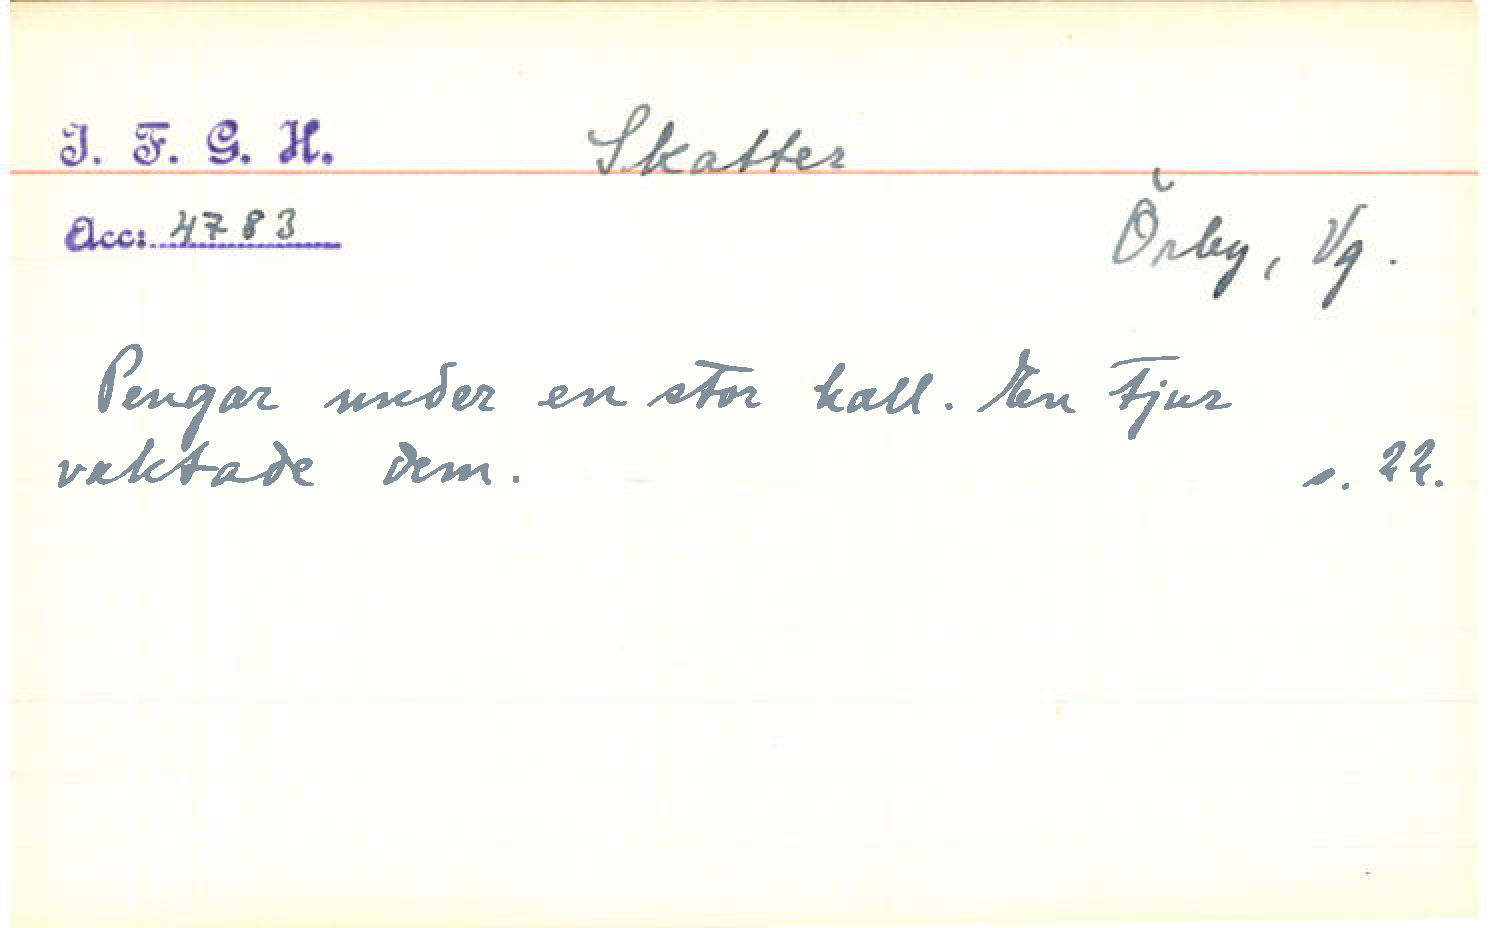 I. F. G. H. Skatter
Acc: 4783 Örby, Vg.
Pengar under en stor hall. En tjur
vaktade dem. s. 22.